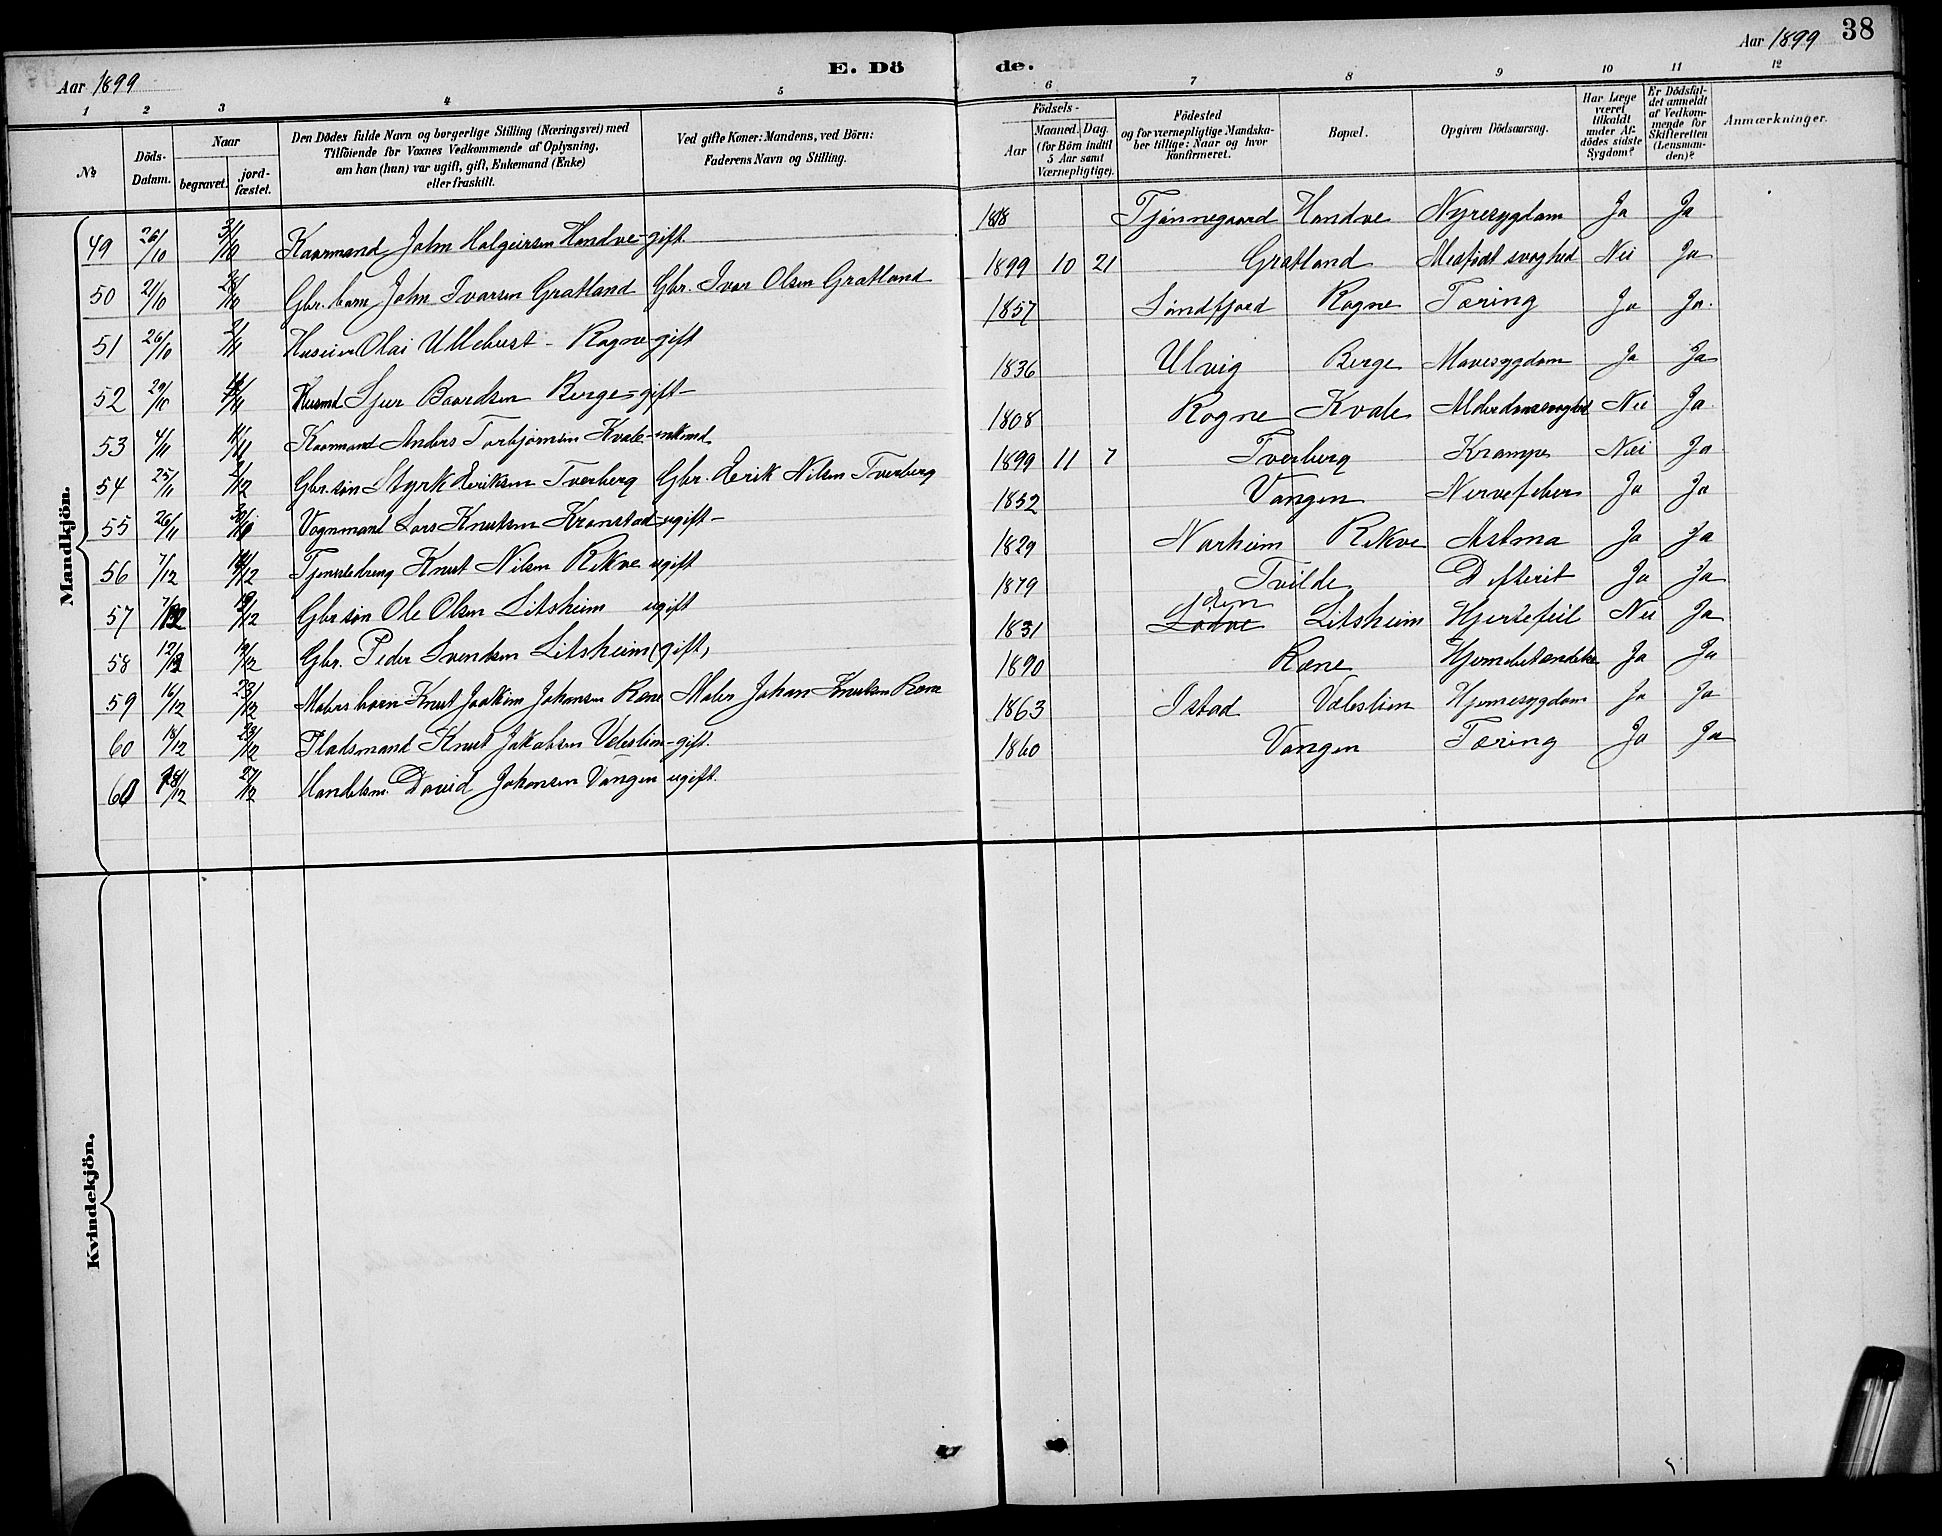 Aar 1899
E. Dö
de.
Aar 1899
38
1 2 3 4 5 6 7 8 9 10 11 12
№
Döds-Datum.
Naar
begravet.
jord-fæstet.
Den Dödes fulde Navn og borgerlige Stilling (Næringsvei) med
Tilföiende for Voxnes Vedkommende af Oplysning,
om han (hun) var ugift, gift, Enkemand (Enke)
eller fraskilt.
Ved gifte Koner: Mandens, ved Börn:
Faderens Navn og Stilling.
Födsels-
Aar
Maaned. Dag.
(for Börn indtil
5 Aar samt
Værnepligtige).
Födested
og for værnepligtige Mandska-
ber tillige: Naar og hvor
konfirmeret.
Bopæl.
Opgiven Dödsaarsag.
Har Læge
været
tilkaldt
under Af-
dödes sidste
Sygdom?
Er Dödsfal-
det anmeldt
af Vedkom-
mende for
Skifteretten
(Lensman-
den)?
Anmærkninger.
Mandkjön.
49 26/10 Kaarmand John Holgeirsen Handve - gift 1818 Tjønnegaard Handve Nyresygdom Ja Ja
50 21/10 28/10 Gbr. barn John Ivarsen Gratland Gbr. Ivar Olsen Gratland 1899 10 21 Gratland Medfødt svaghed Nei Ja
51 26/10 2/11 Huseier Olai Ullebust - Rogne gift 1857 Søndfjord Rogne Tæring Ja Ja
52 29/10 Husmd Sjur Baardsen Berge - gift - 1836 Ulvig Berge Mavesygdom Ja Ja
53 4/11 11/11 Kaarmand Anders Torbjørnsen Kvale - enkemd 1808 Rogne Kvale Alderdomssvaghed Nei Ja
54 25/11 2/12 Gbr. søn Styrk Eriksen Tverberg Gbr. Erik Nilsen Tverberg 1899 11 7 Tverberg Krampe Nei Ja
55 26/11 Vognmand Lars Knutsen Kronstad - ugift - 1852 Vangen Nervefeber Ja Ja
56 7/12 Tjenestedreng Knut Nilsen Rekve ugift 1829 Narheim Rekve Astma Ja Ja
57 7/12 Gbr søn Ole Olsen Litsheim ugift 1879 Tvilde Difterit Ja Ja
58 12/12 19/12 Gbr. Peder Svendsen Litsheim (gift) 1831 Litsheim Hjertefeil Nei Ja
59 16/12 23/12 Malers barn Knut Joakim Johansen Rene Maler Johan Knutsen Rene 1890 Rene Hjernebetændelse Ja Ja
60 18/12 23/12 Pladsmand Knut Jakobsen Velestien - gift. 1863 Istad Velestien Hjernesygdom Ja Ja
61 18/12 27/12 Handelsm. David Johansen Vangen ugift. 1860 Vangen Tæring Ja Ja
Kvindekjön.